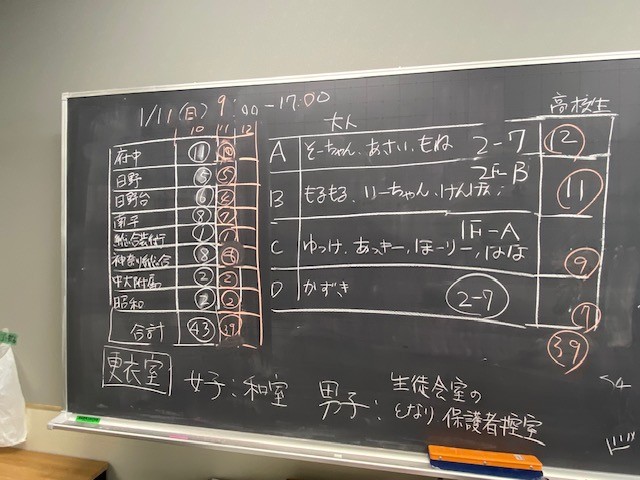 1/11(日) 9:00-17:00
10 11 12
府中 ⑪
日野 ⑤ ⑤
日野台 ⑥
南平 ⑧
総合芸術 1
神奈川総合 ⑧
中大附属 ② ②
昭和 ② ②
合計 ㊸ ㊴
大人 高校生
A そーちゃん、あさい、もね 2-7 ⑫
B もるもる、りーちゃん、けんけん 2F-B ⑪
C ゆっけ、あっきー、ほーりー、はな 1F-A ⑨
D かずき 2-7 ⑦
㊴
更衣室 女子:和室 男子:生徒会室の
となり 保護者控室